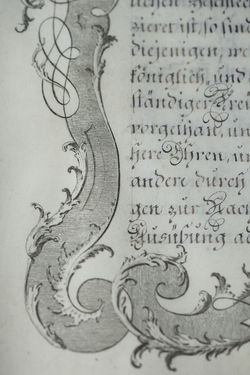 lichen Geschlech
zieret ist, so sind
diejenigen, we
königlich, und
ständiger Frei
vorgethan, un
here Ehren, u
andere durch
gen zur Nach
Ausübung a